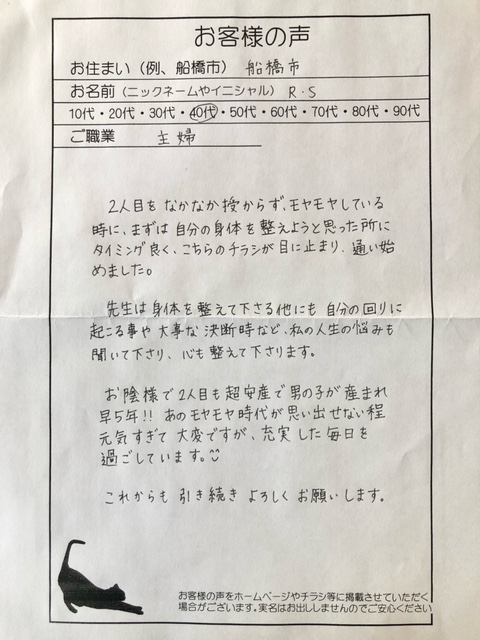 お客様の声
お住まい（例、船橋市） 船橋市
お名前（ニックネームやイニシャル） R.S
10代・20代・30代・40代・50代・60代・70代・80代・90代
ご職業 主婦
2人目を なかなか授からず、モヤモヤしている
時に、まずは 自分の身体を整えようと思った所に
タイミング良く、こちらのチラシが目に止まり、通い始
めました。
先生は身体を整えて下さる他にも 自分の回りに
起こる事や 大事な 決断時など、私の人生の悩みも
聞いて下さり、心も整えて下さります。
お陰様で2人目も超安産で男の子が産まれ
早5年!! あのモヤモヤ時代が思い出せない程
元気すぎて 大変ですが、充実した毎日を
過ごしています。
これからも 引き続き よろしく お願いします。
お客様の声をホームページやチラシ等に掲載させていただく
場合がございます。実名はお出ししませんのでご安心ください